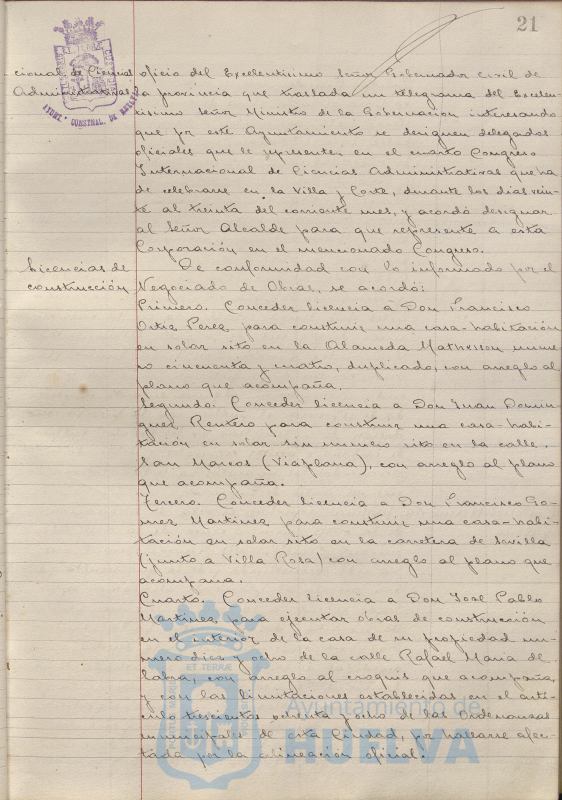 21
cional de Ciencias
Administrativas
oficio del Excelentisimo Señor Gobernador civil de
la provincia que traslada un telegrama del Excelen-
tisimo Señor Ministro de la Gobernacion interesando
que por este Ayuntamiento se designen delegados
oficiales que le representen en el cuarto Congreso
Internacional de Ciencias Administrativas que ha
de celebrarse en la Villa y Corte, durante los dias vein-
te al treinta del corriente mes, y acordó designar
al Señor Alcalde para que represente a esta
Corporación en el mencionado Congreso.
Licencias de
construcción
De conformidad con lo informado por el
Negociado de Obras, se acordó:
Primero. Conceder licencia á Don Francisco
Ortiz Perez para construir una casa-habitación
en solar sito en la Alameda Mathesson nume-
ro cincuenta y cuatro, duplicado, con arreglo al
plano que acompaña.
Segundo. Conceder licencia a Don Juan Domin-
guez Rentero para construir una casa-habi-
tación en solar sin numero sito en la calle
San Marcos (Viaplana), con arreglo al plano
que acompaña.
Tercero. Conceder licencia a Don Francisco Go-
mez Martinez para construir una casa-habi-
tación en solar sito en la carretera de Sevilla
(junto a Villa Rosa) con arreglo al plano que
acompaña.
Cuarto. Conceder licencia a Don José Pablo
Martinez para ejecutar obras de construcción
en el interior de la casa de su propiedad nu-
mero diez y ocho de la calle Rafael Maria de
Labra, con arreglo al croquis que acompaña,
y con las limitaciones establecidas en el arti-
culo trescientos ochenta y ocho de las Ordenanzas
municipales de esta Ciudad, por hallarse afec-
tada por la alineación oficial.
Ayuntamiento de
HUELVA